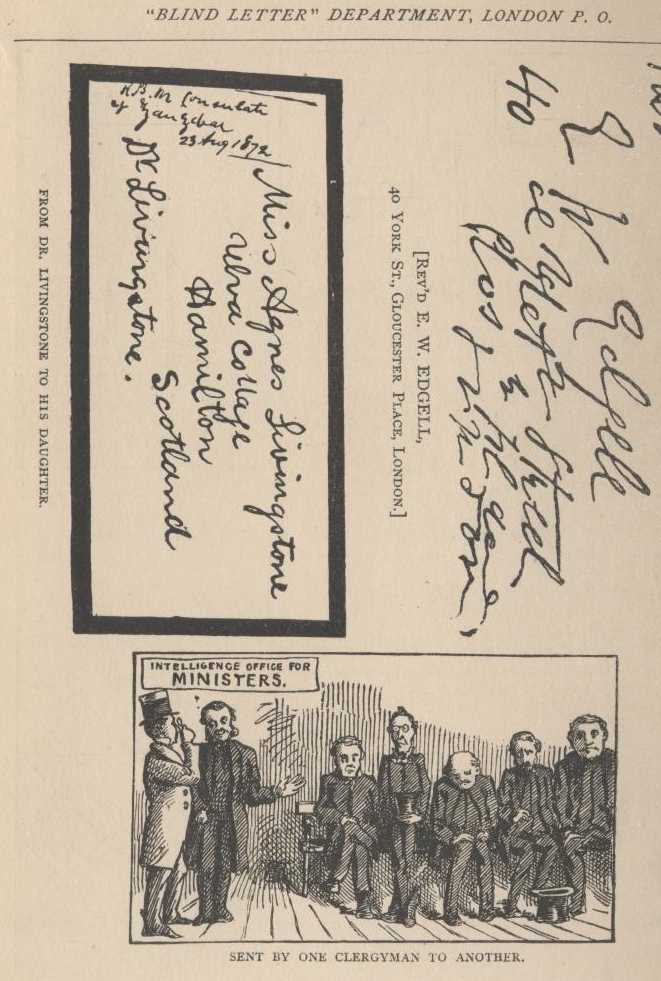 "BLIND LETTER" DEPARTMENT, LONDON P. O.
H.B.M Consulate
23 Aug 1872
Miss Agnes Livingstone
Ulva Cottage
Hamilton
Scotland
Dr Livingstone.
FROM DR. LIVINGSTONE TO HIS DAUGHTER.
E W Edgell
40
[REV'D E. W. EDGELL,
40 YORK ST., GLOUCESTER PLACE, LONDON.]
INTELLIGENCE OFFICE FOR
MINISTERS.
SENT BY ONE CLERGYMAN TO ANOTHER.